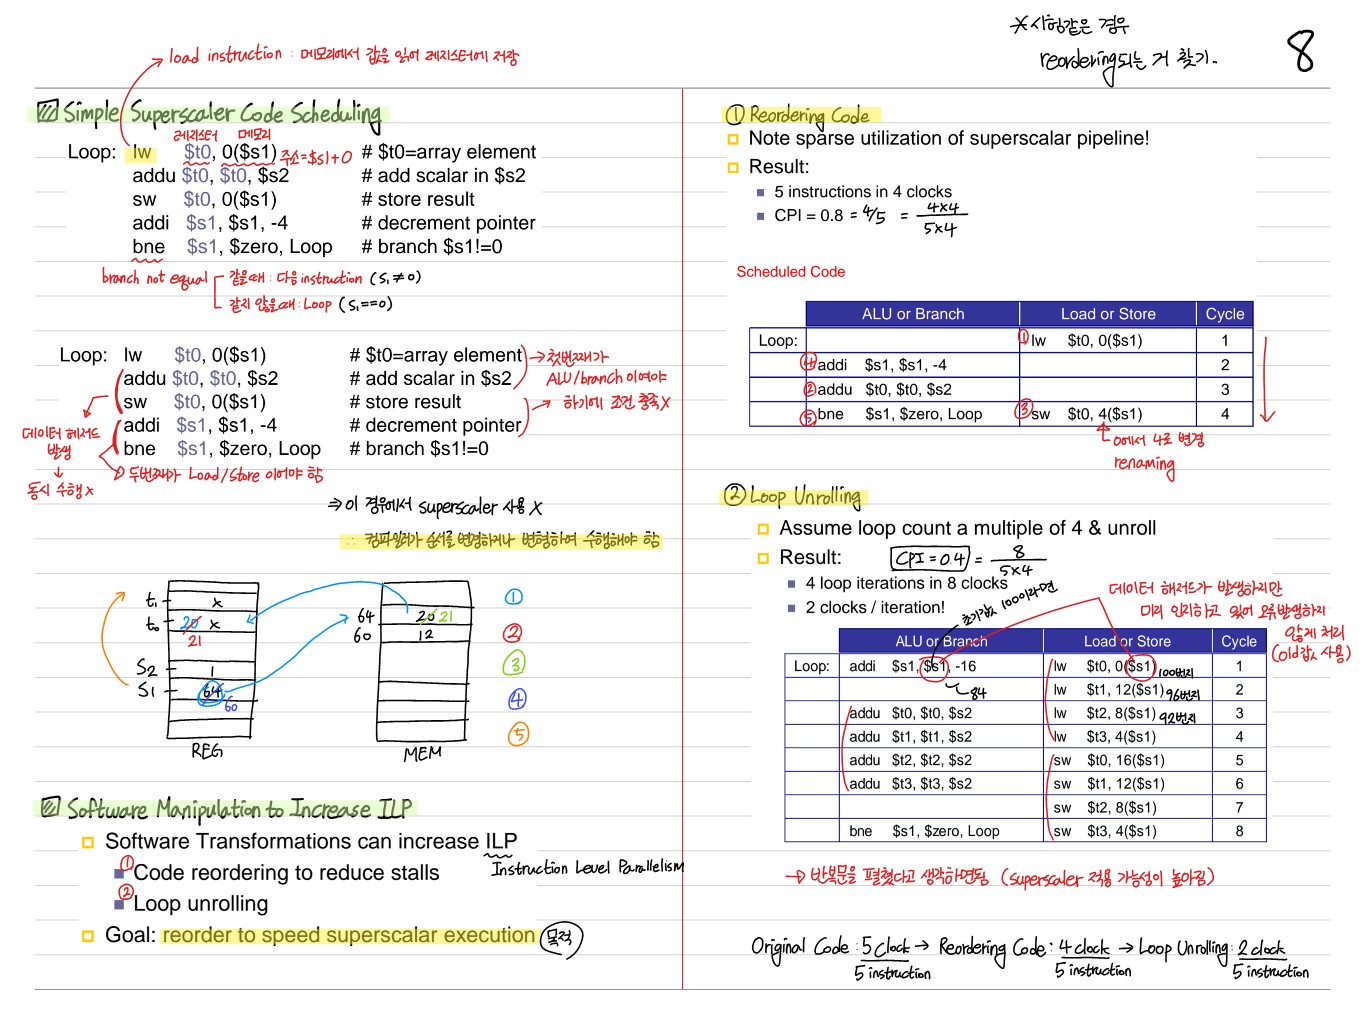 *시험같은 경우
reordering되는 거 찾기.
8
load instruction : 메모리에서 값을 읽어 레지스터에 저장
Simple Superscaler Code Scheduling
레지스터 메모리
Loop: lw $t0, 0($s1) 주소=$s1+0 # $t0=array element
addu $t0, $t0, $s2 # add scalar in $s2
sw $t0, 0($s1) # store result
addi $s1, $s1, -4 # decrement pointer
bne $s1, $zero, Loop # branch $s1!=0
branch not equal 같을때 : 다음 instruction (s₁≠0)
같지 않을때 : Loop (s₁==0)
Loop: lw $t0, 0($s1) # $t0=array element
addu $t0, $t0, $s2 # add scalar in $s2
sw $t0, 0($s1) # store result
addi $s1, $s1, -4 # decrement pointer
bne $s1, $zero, Loop # branch $s1!=0
→ 첫번째가
ALU/branch 이여야
→ 하기에 조건 충족 X
데이터 해저드
발생
↓
동시 수행 X
두번째가 Load/Store 이어야 함
⇒ 이 경우에서 superscaler 사용 X
∴ 컴파일러가 순서를 변경하거나 변형하여 수행해야 함
t₁ x
t₀ 20 x
21
S2 1
S1 64
60
REG
64 20 21
60 12
MEM
①
②
③
④
⑤
Software Manipulation to Increase ILP
Software Transformations can increase ILP
Instruction Level Parallelism
① Code reordering to reduce stalls
② Loop unrolling
Goal: reorder to speed superscalar execution 목적
① Reordering Code
Note sparse utilization of superscalar pipeline!
Result:
5 instructions in 4 clocks
CPI = 0.8 = 4/5 = 4x4
5x4
Scheduled Code
ALU or Branch Load or Store Cycle
Loop: ① lw $t0, 0($s1) 1
④ addi $s1, $s1, -4 2
② addu $t0, $t0, $s2 3
⑤ bne $s1, $zero, Loop ③ sw $t0, 4($s1) 4
0에서 4로 변경
renaming
② Loop Unrolling
Assume loop count a multiple of 4 & unroll
Result: CPI = 0.4 = 8
5x4
4 loop iterations in 8 clocks
2 clocks / iteration!
초기값 100이라면
데이터 해저드가 발생하지만
미리 인지하고 있어 오류발생하지
않게 처리
(old값 사용)
ALU or Branch Load or Store Cycle
Loop: addi $s1, $s1, -16 lw $t0, 0($s1) 100번지 1
84 lw $t1, 12($s1) 96번지 2
addu $t0, $t0, $s2 lw $t2, 8($s1) 92번지 3
addu $t1, $t1, $s2 lw $t3, 4($s1) 4
addu $t2, $t2, $s2 sw $t0, 16($s1) 5
addu $t3, $t3, $s2 sw $t1, 12($s1) 6
sw $t2, 8($s1) 7
bne $s1, $zero, Loop sw $t3, 4($s1) 8
→ 반복문을 펼쳤다고 생각하면됨 (superscaler 적용 가능성이 높아짐)
Original Code : 5 clock → Reordering Code : 4 clock → Loop Unrolling : 2 clock
5 instruction 5 instruction 5 instruction